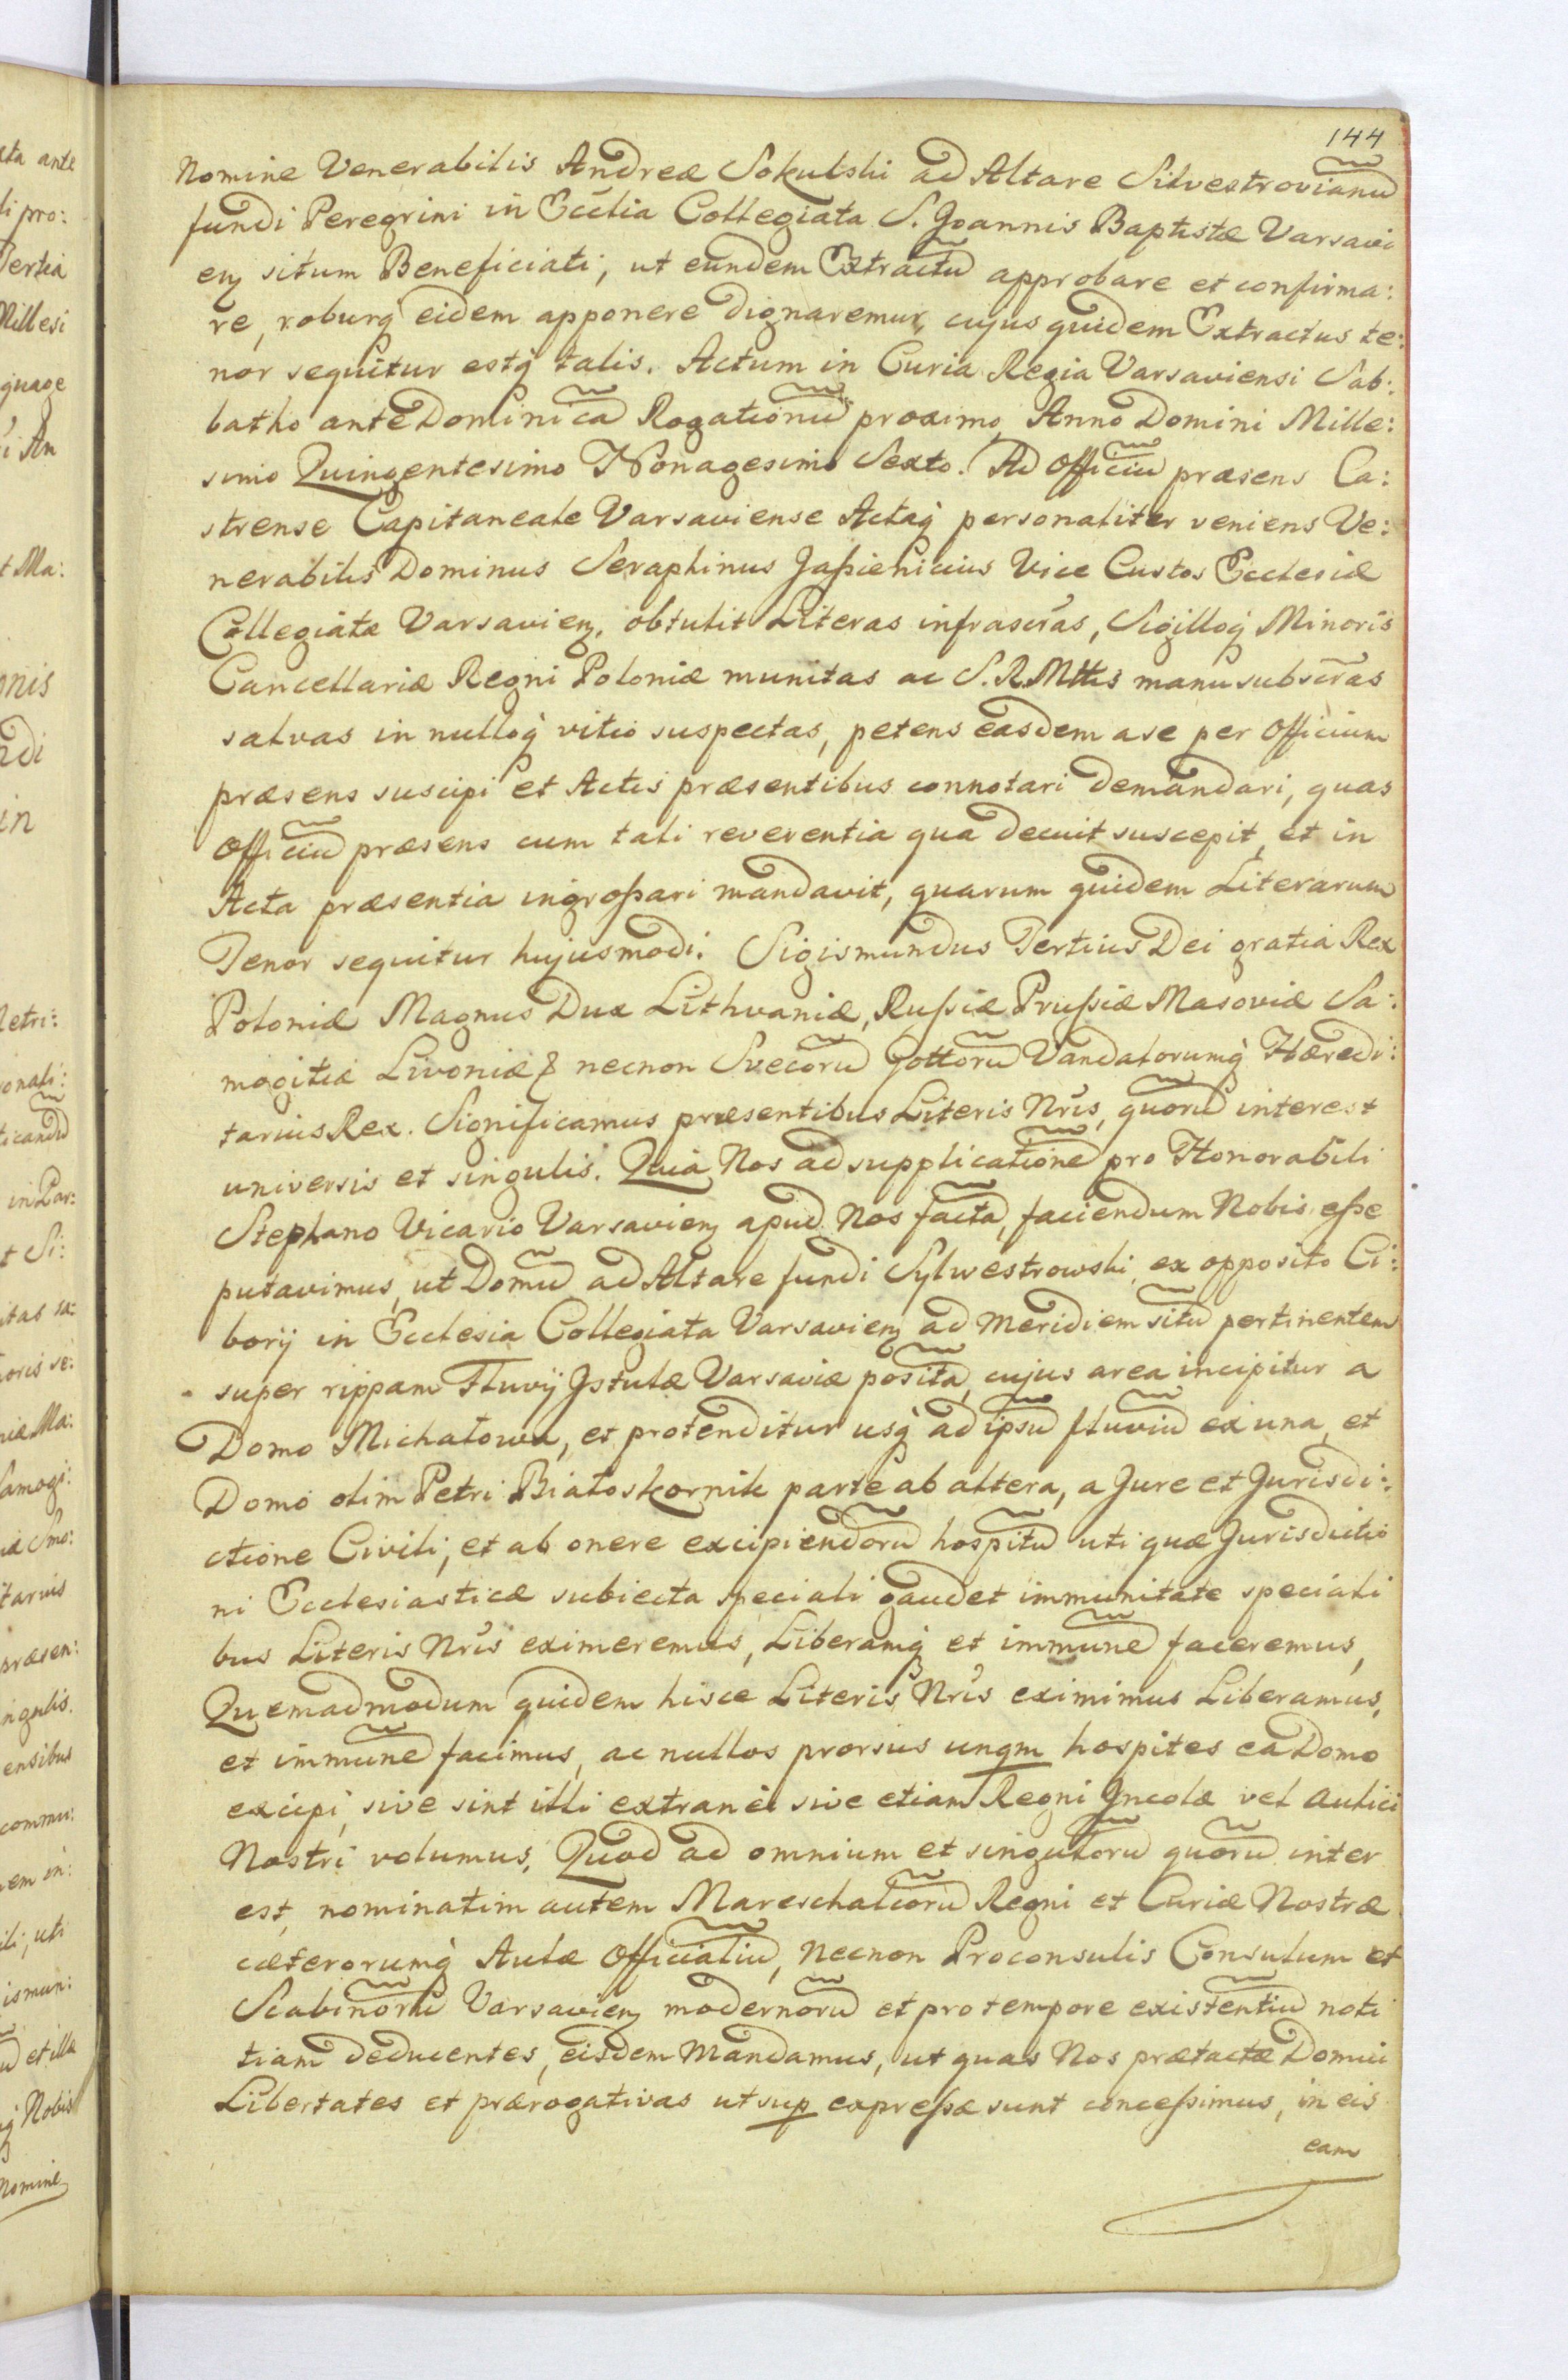 144
Nomine Venerabilis Andreæ Sokulski ad Altare Silvestrovianũ
fundi Peregrini in Ecclia Collegiata S. Joannis Baptistæ Varsavi
eñ situm Beneficiati, ut eundem Extractũ approbare et confirma:
re, roburq̀ eidem apponere dignaremur, cujus quidem Extractus te:
nor sequitur estq̀ talis. Actum in Curia Regia Varsaviensi Sab:
batho ante Dominicã Rogationũ proximo, Anno Domini Mille:
simo Quingentesimo Nonagesimo Sexto. Ad Officiũ præsens Ca:
strense Capitaneale Varsaviense Actaq̀ personaliter veniens Ve:
nerabilis Dominus Seraphinus Jaßienicius Vice Custos Ecclesiæ
Collegiatæ Varsavieñ. obtulit Literas infrascr̃as, Sigilloq̀ Minoris
Cancellariæ Regni Poloniæ munitas ac S. R. Mttis manu subscr̃as
salvas in nulloq̀ vitio suspectas, petens easdem a se per Officium
præsens suscipi et Actis præsentibus connotari demandari, quas
Officiũ præsens cum tali reverentia qua decuit suscepit, et in
Acta præsentia ingroßari mandavit, quarum quidem Literarum
Tenor sequitur hujusmodi. Sigismundus Tertius Dei gratia Rex
Poloniæ Magnus Dux Lithvaniæ, Rußiæ Prußiæ Masoviæ Sa:
mogitiæ Livoniæ & necnon Svecorũ Gottorũ Vandalorumq̀ Hæredi:
tarius Rex. Significamus præsentibus Literis Nr̃is, quorũ interest
universis et singulis. Quia Nos ad supplicationẽ pro Honorabili
Stephano Vicario Varsavieñ apud Nos factã, faciendum Nobis eße
putavimus, ut Domũ ad Altare fundi Sylwestrowski, ex opposito Ci:
borij in Ecclesia Collegiata Varsavieñ ad meridiem sitũ pertinentem
super rippam Fluvij Istulæ Varsaviæ positã, cujus area incipitur a
Domo Michałowa, et protenditur usq̀ ad ipsũ fluviũ ex una, et
Domo olim Petri Białoskornik parte ab altera, a Jure et Jurisdi:
ctione Civili, et ab onere excipiendorũ hospitũ uti quæ Jurisdictio
ni Ecclesiasticæ subiecta speciali gaudet immunitate speciali
bus Literis Nr̃is eximeremus, Liberamq̀ et immunẽ faceremus,
Quemadmodum quidem hisce Literis Nr̃is eximimus Liberamus,
et immunẽ facimus, ac nullos prorsus unqm hospites ea Domo
excipi, sive sint illi extranei sive etiam Regni Incolæ vel Aulici
Nostri volumus, Quod ad omnium et singulorũ quorũ inter
est, nominatim autem Mareschalcorũ Regni et Curiæ Nostræ
cæterorumq̀ Aulæ Officialiũ, necnon Proconsulis Consulum et
Scabinorũ Varsavieñ modernorũ et pro tempore existentiũ noti
tiam deducentes, eisdem Mandamus, ut quas Nos prætactæ Domui
Libertates et prærogativas ut sup expreßæ sunt conceßimus, in eis
eam